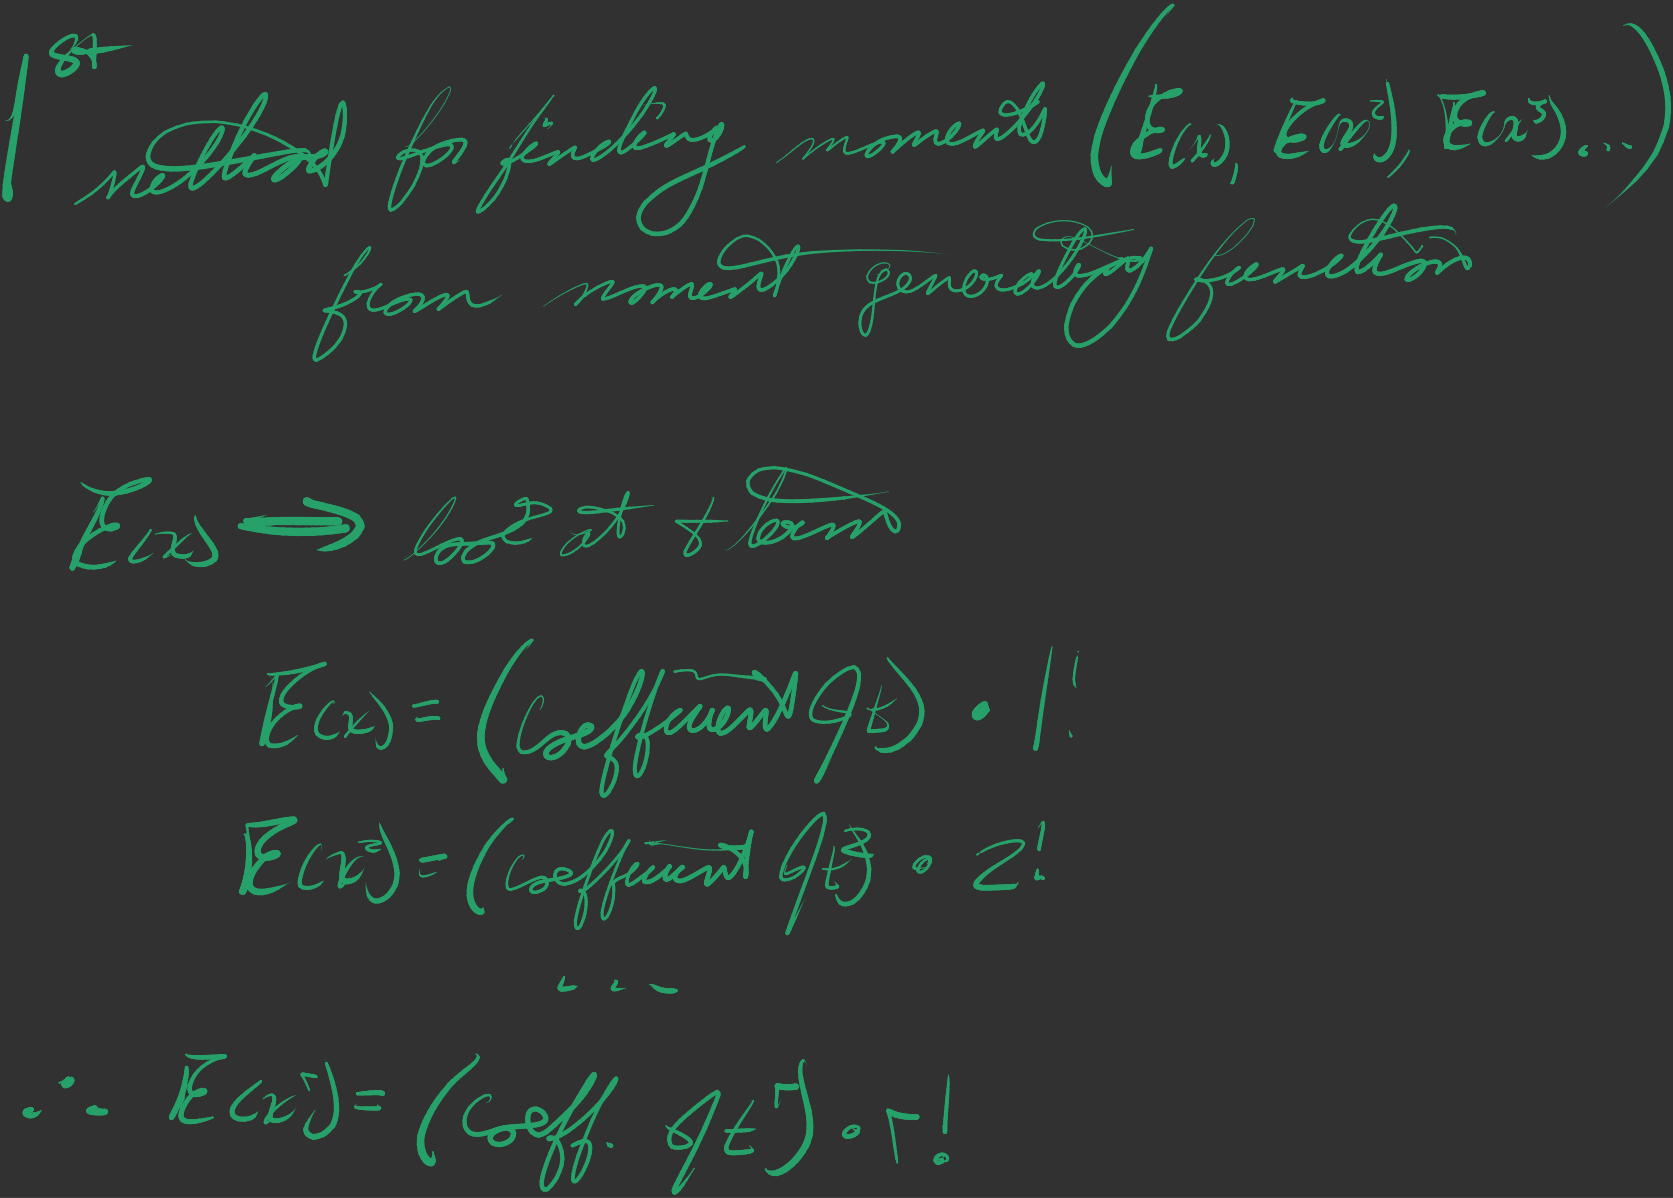 1st method for finding moments (E(x), E(x²), E(x³)...)
from moment generating function
E(x) ⇒ look at t term
E(x) = (coefficient of t) • 1!
E(x²) = (coefficient of t²) • 2!
...
∴ E(xʳ) = (coeff. of tʳ) • r!